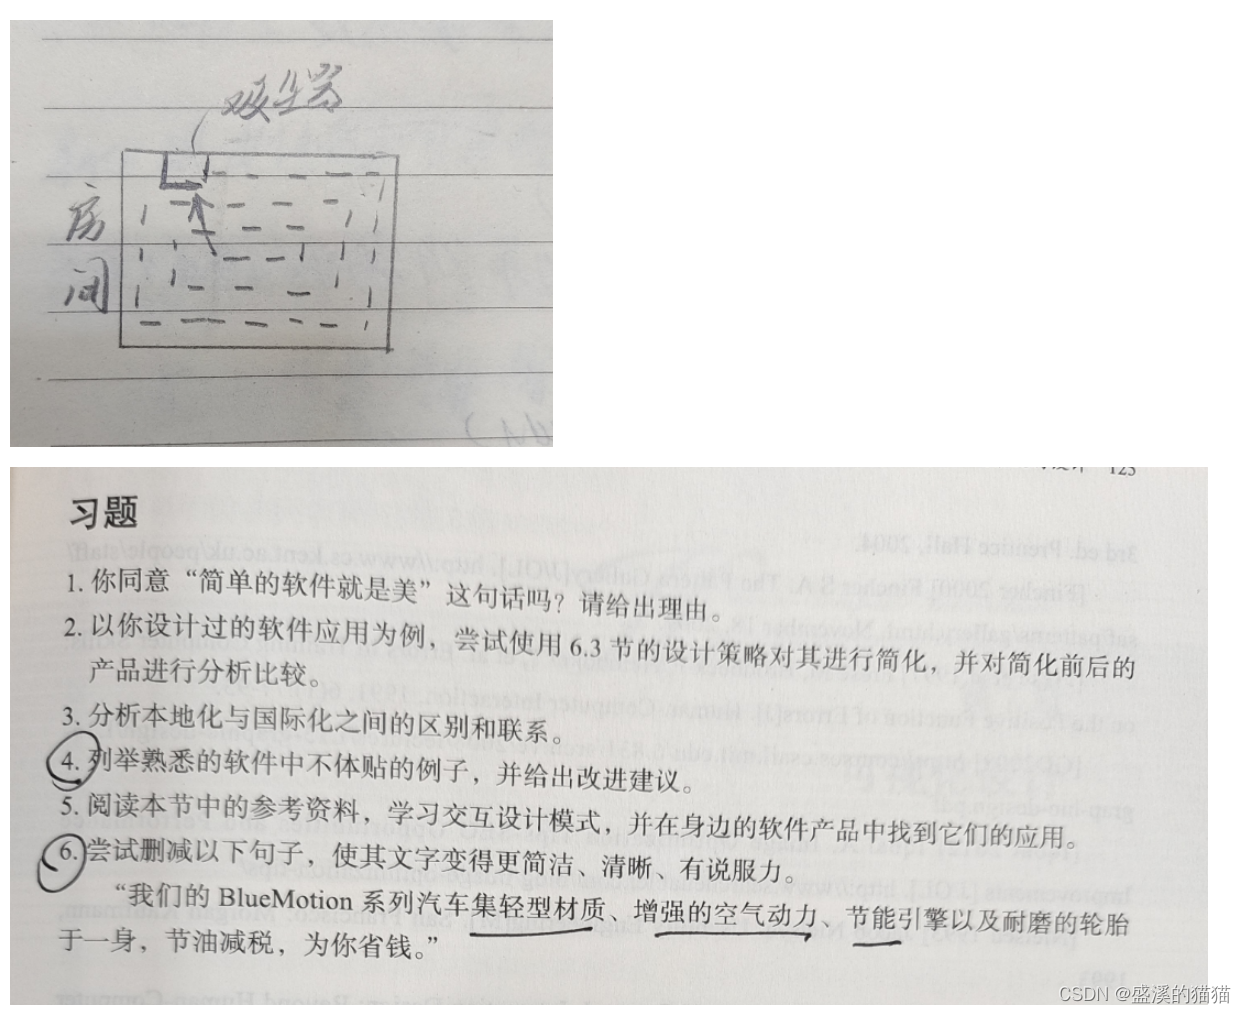 吸尘器
房
间
习题
1. 你同意“简单的软件就是美”这句话吗？请给出理由。
2. 以你设计过的软件应用为例，尝试使用 6.3 节的设计策略对其进行简化，并对简化前后的
产品进行分析比较。
3. 分析本地化与国际化之间的区别和联系。
4. 列举熟悉的软件中不体贴的例子，并给出改进建议。
5. 阅读本节中的参考资料，学习交互设计模式，并在身边的软件产品中找到它们的应用。
6. 尝试删减以下句子，使其文字变得更简洁、清晰、有说服力。
“我们的 BlueMotion 系列汽车集轻型材质、增强的空气动力、节能引擎以及耐磨的轮胎
于一身，节油减税，为你省钱。”
CSDN @盛溪的猫猫